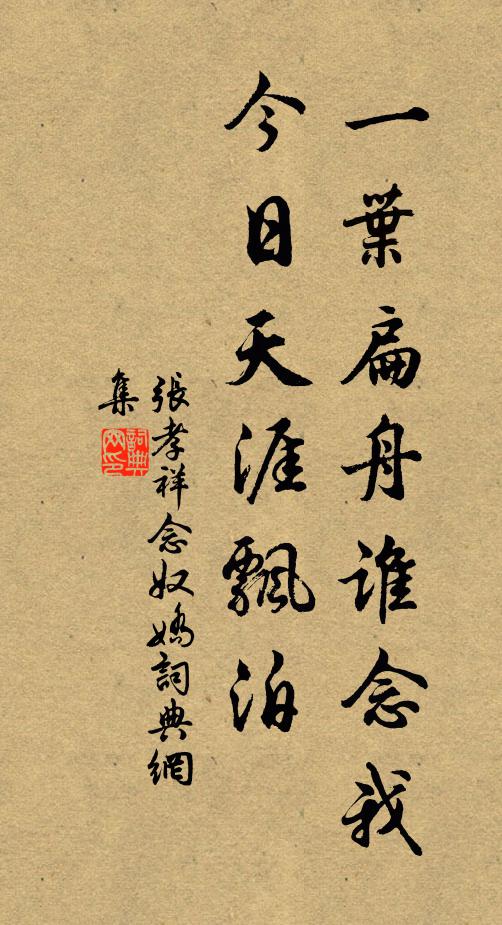 一葉扁舟誰念我
今日天涯飄泊
張孝祥念奴嬌詞典網
集
詞典
网印